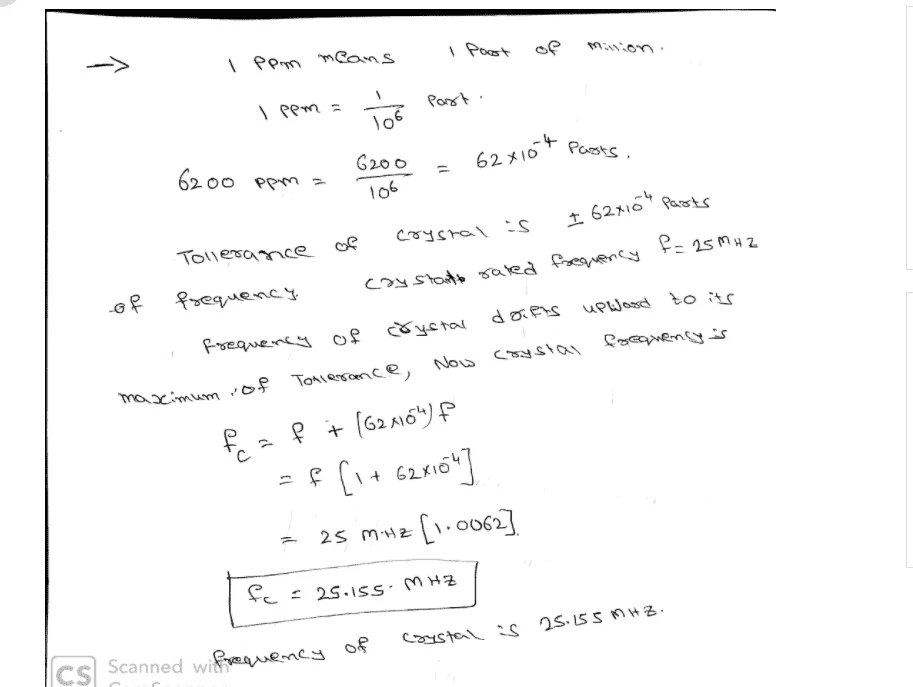 → 1 ppm means 1 Part of Million.
1 ppm = 1/10⁶ Part.
6200 ppm = 6200/10⁶ = 62×10⁻⁴ Parts.
Tollerance of crystal is ± 62×10⁻⁴ Parts
of frequency. rated frequency f = 25 MHZ
frequency of crystal drifts upward to its
maximum of Tollerance, Now crystal frequency is
f_c = f + (62×10⁻⁴) f
= f [1 + 62×10⁻⁴]
= 25 MHZ [1.0062]
f_c = 25.155 MHZ
frequency of crystal is 25.155 MHZ.
CS Scanned with